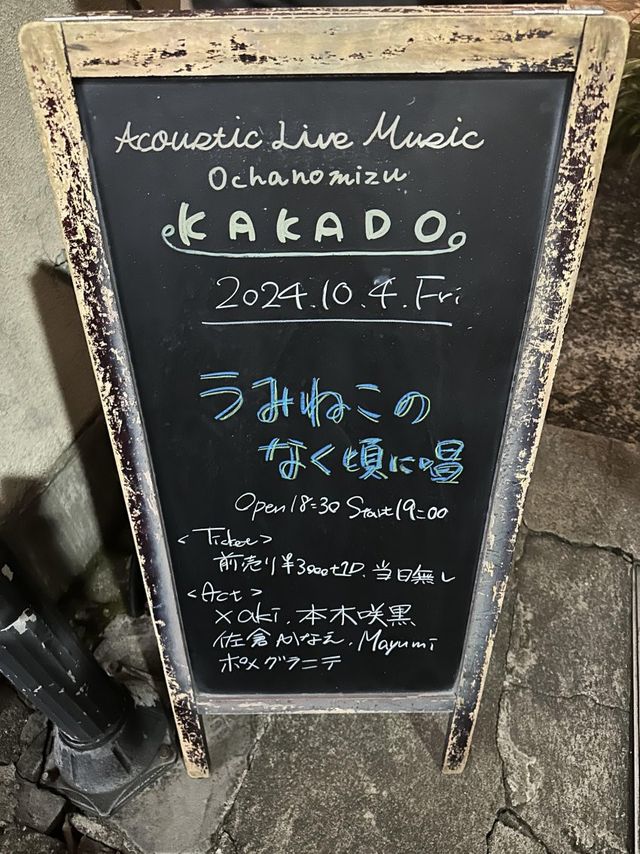 Acoustic Live Music
Ochanomizu
KAKADO
2024.10.4.Fri
うみねこの
なく頃に唱
Open 18:30 Start 19:00
<Ticket>
前売り ¥3000+1D. 当日無し
<Act>
×aki. 本木咲黒
佐倉かなえ. Mayumi
ポメグラニテ